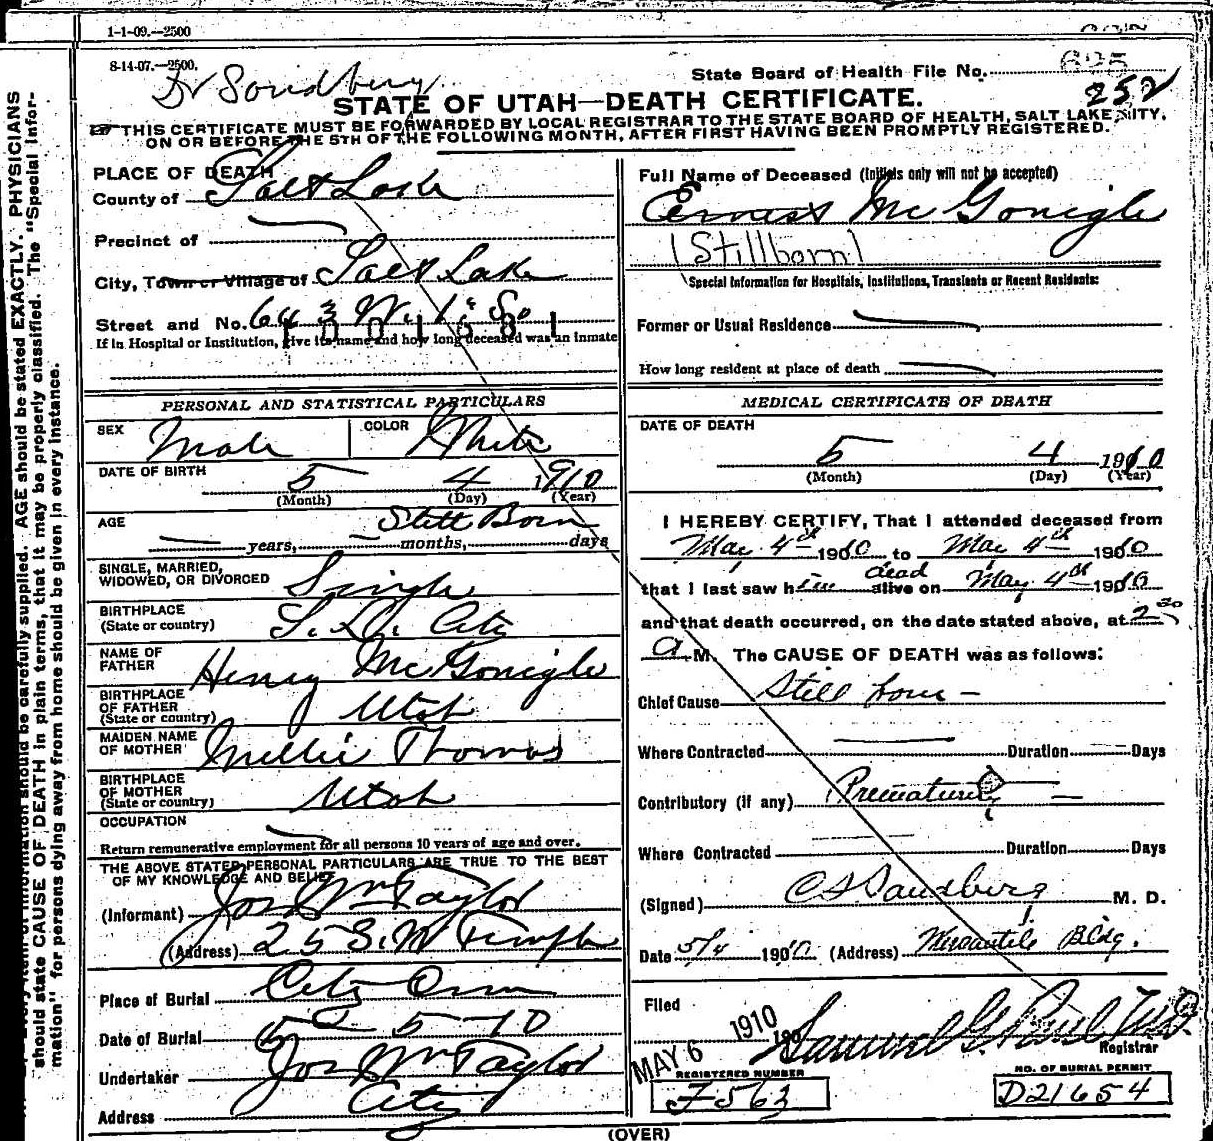 1-1-09.—2500
8-14-07.—2500.
Dr Sandberg
State Board of Health File No. 252
STATE OF UTAH—DEATH CERTIFICATE.
THIS CERTIFICATE MUST BE FORWARDED BY LOCAL REGISTRAR TO THE STATE BOARD OF HEALTH, SALT LAKE CITY,
ON OR BEFORE THE 5TH OF THE FOLLOWING MONTH, AFTER FIRST HAVING BEEN PROMPTLY REGISTERED.
PLACE OF DEATH
County of Salt Lake
Precinct of
City, Town or Village of Salt Lake
Street and No. 643 W. 1st So
If in Hospital or Institution, give its name and how long deceased was an inmate
Full Name of Deceased (Initials only will not be accepted)
Ernest McGonigle
(Stillborn)
Special Information for Hospitals, Institutions, Transients or Recent Residents:
Former or Usual Residence
How long resident at place of death
PERSONAL AND STATISTICAL PARTICULARS
SEX Male COLOR White
DATE OF BIRTH
5 4 1910
(Month) (Day) (Year)
AGE Still Born
years, months, days
SINGLE, MARRIED,
WIDOWED, OR DIVORCED Single
BIRTHPLACE
(State or country) S. L. City
NAME OF
FATHER Henry McGonigle
BIRTHPLACE
OF FATHER
(State or country) Utah
MAIDEN NAME
OF MOTHER Mellie Thomas
BIRTHPLACE
OF MOTHER
(State or country) Utah
OCCUPATION
Return remunerative employment for all persons 10 years of age and over.
THE ABOVE STATED PERSONAL PARTICULARS ARE TRUE TO THE BEST
OF MY KNOWLEDGE AND BELIEF
(Informant) Jos Wm Taylor
(Address) 25 S. W Temple
Place of Burial City Cem
Date of Burial 5-5-10
Undertaker Jos Wm Taylor
Address City
MEDICAL CERTIFICATE OF DEATH
DATE OF DEATH
5 4 1910
(Month) (Day) (Year)
I HEREBY CERTIFY, That I attended deceased from
May 4th 1910 to May 4th 1910
that I last saw him dead alive on May 4th 1910
and that death occurred, on the date stated above, at 2 30
A. M. The CAUSE OF DEATH was as follows:
Chief Cause Still born
Where Contracted Duration Days
Contributory (if any) Prematurity
Where Contracted Duration Days
(Signed) C S Sandberg M. D.
Date 5/4 1910 (Address) Mercantile Bldg.
Filed
MAY 6 1910 190 Samuel G. Paul M.D.
Registrar
REGISTERED NUMBER
F 563
NO. OF BURIAL PERMIT
D21654
(OVER)
information should be carefully supplied. AGE should be stated EXACTLY. PHYSICIANS
should state CAUSE OF DEATH in plain terms, that it may be properly classified. The "Special Infor-
mation" for persons dying away from home should be given in every instance.